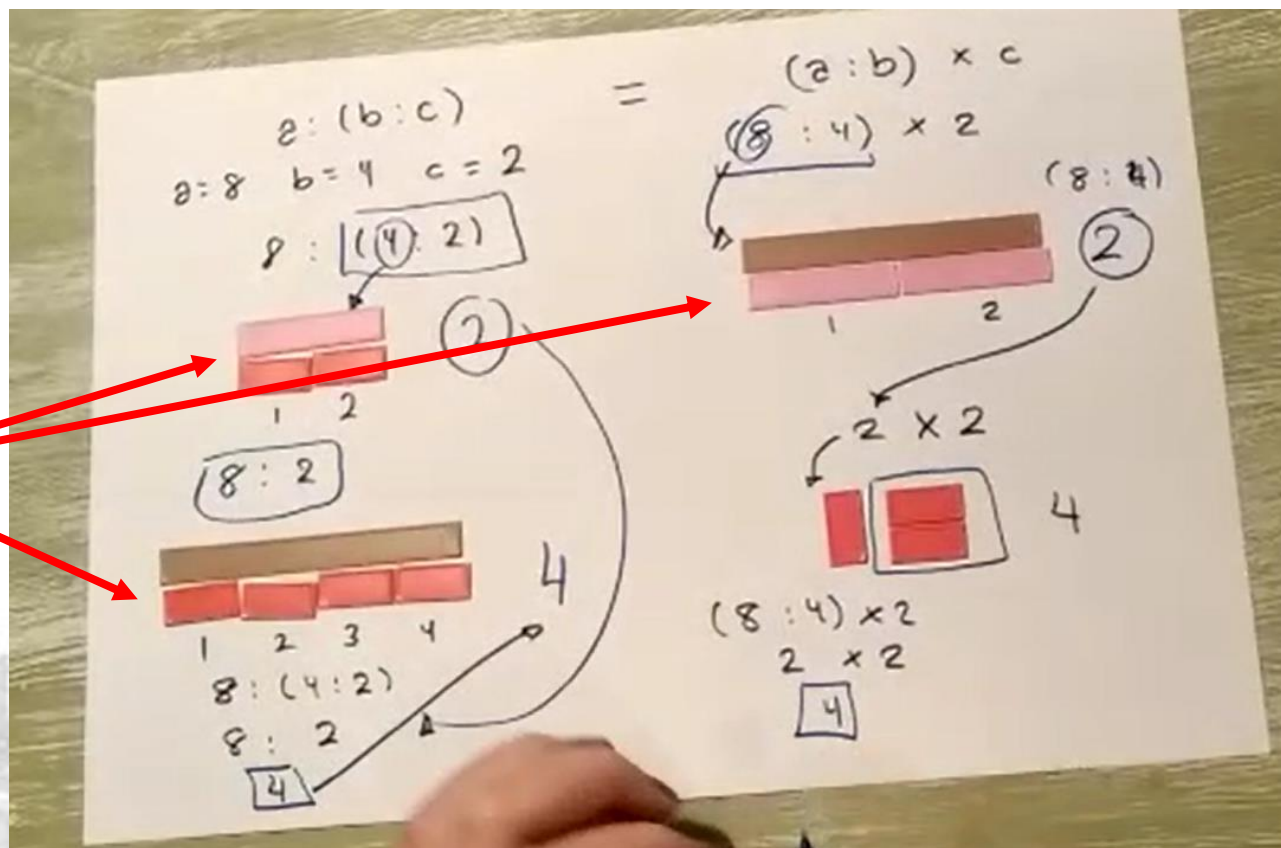 a : (b : c) = (a : b) × c
a = 8 b = 4 c = 2
8 : (4 : 2)
2
1 2
8 : 2
1 2 3 4
4
8 : (4 : 2)
8 : 2
4
(8 : 4) × 2
(8 : 4)
2
1 2
2 × 2
4
(8 : 4) × 2
2 × 2
4